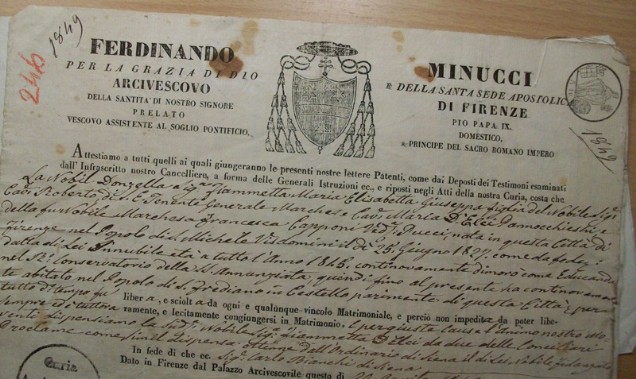 246
1849
FERDINANDO
MINUCCI
PER LA GRAZIA DI DIO
& DELLA SANTA SEDE APOSTOLICA
ARCIVESCOVO
DI FIRENZE
DELLA SANTITÀ DI NOSTRO SIGNORE
PIO PAPA IX.
PRELATO
DOMESTICO,
VESCOVO ASSISTENTE AL SOGLIO PONTIFICIO,
& PRINCIPE DEL SACRO ROMANO IMPERO
1849
Attestiamo a tutti quelli ai quali giungeranno le presenti nostre lettere Patenti, come dai Deposti dei Testimoni esaminati
dall'Infrascritto nostro Cancelliere, a forma delle Generali Istruzioni ec., e riposti negli Atti della nostra Curia, costa che
La Nobil Donzella Fiammetta Maria Elisabetta Giuseppa figlia del Nobile
Cav. Roberto Tenente Generale Marchese Cav. Maria D'Elci Pannocchieschi e
della Nobile Marchesa Francesca Capponi Ved. Pucci, nata in questa Città di
Firenze nel Popolo di S. Michele Visdomini il dì 25 Giugno 1827. come da fede,
dalla di Lei nubile età a tutto l'Anno 1846, continovamente dimorò come Educanda
nel R. Conservatorio della S. Annunziata, quindi fino al presente ha continovamente
abitato nel Popolo di S. Frediano in Castello parimente di questa Città, e per
tutto d. tempo fu
sempre ed è tuttora
libera, e sciolta da ogni e qualunque vincolo Matrimoniale, e perciò non impedita da poter liberamente,
ramente, e lecitamente congiungersi in Matrimonio. E per giusta causa l'Animo nostro
dispensiamo la sud. Nobile Sig. Fiammetta D'Elci da due delle Conciliari
Proclame come simil Dispensa ottenne dall'Ordinario di Siena il di Lei Nobile
In fede di che ec. Sig. Carlo Bianchi di Siena
Dato in Firenze dal Palazzo Arcivescovile questo dì
Curia